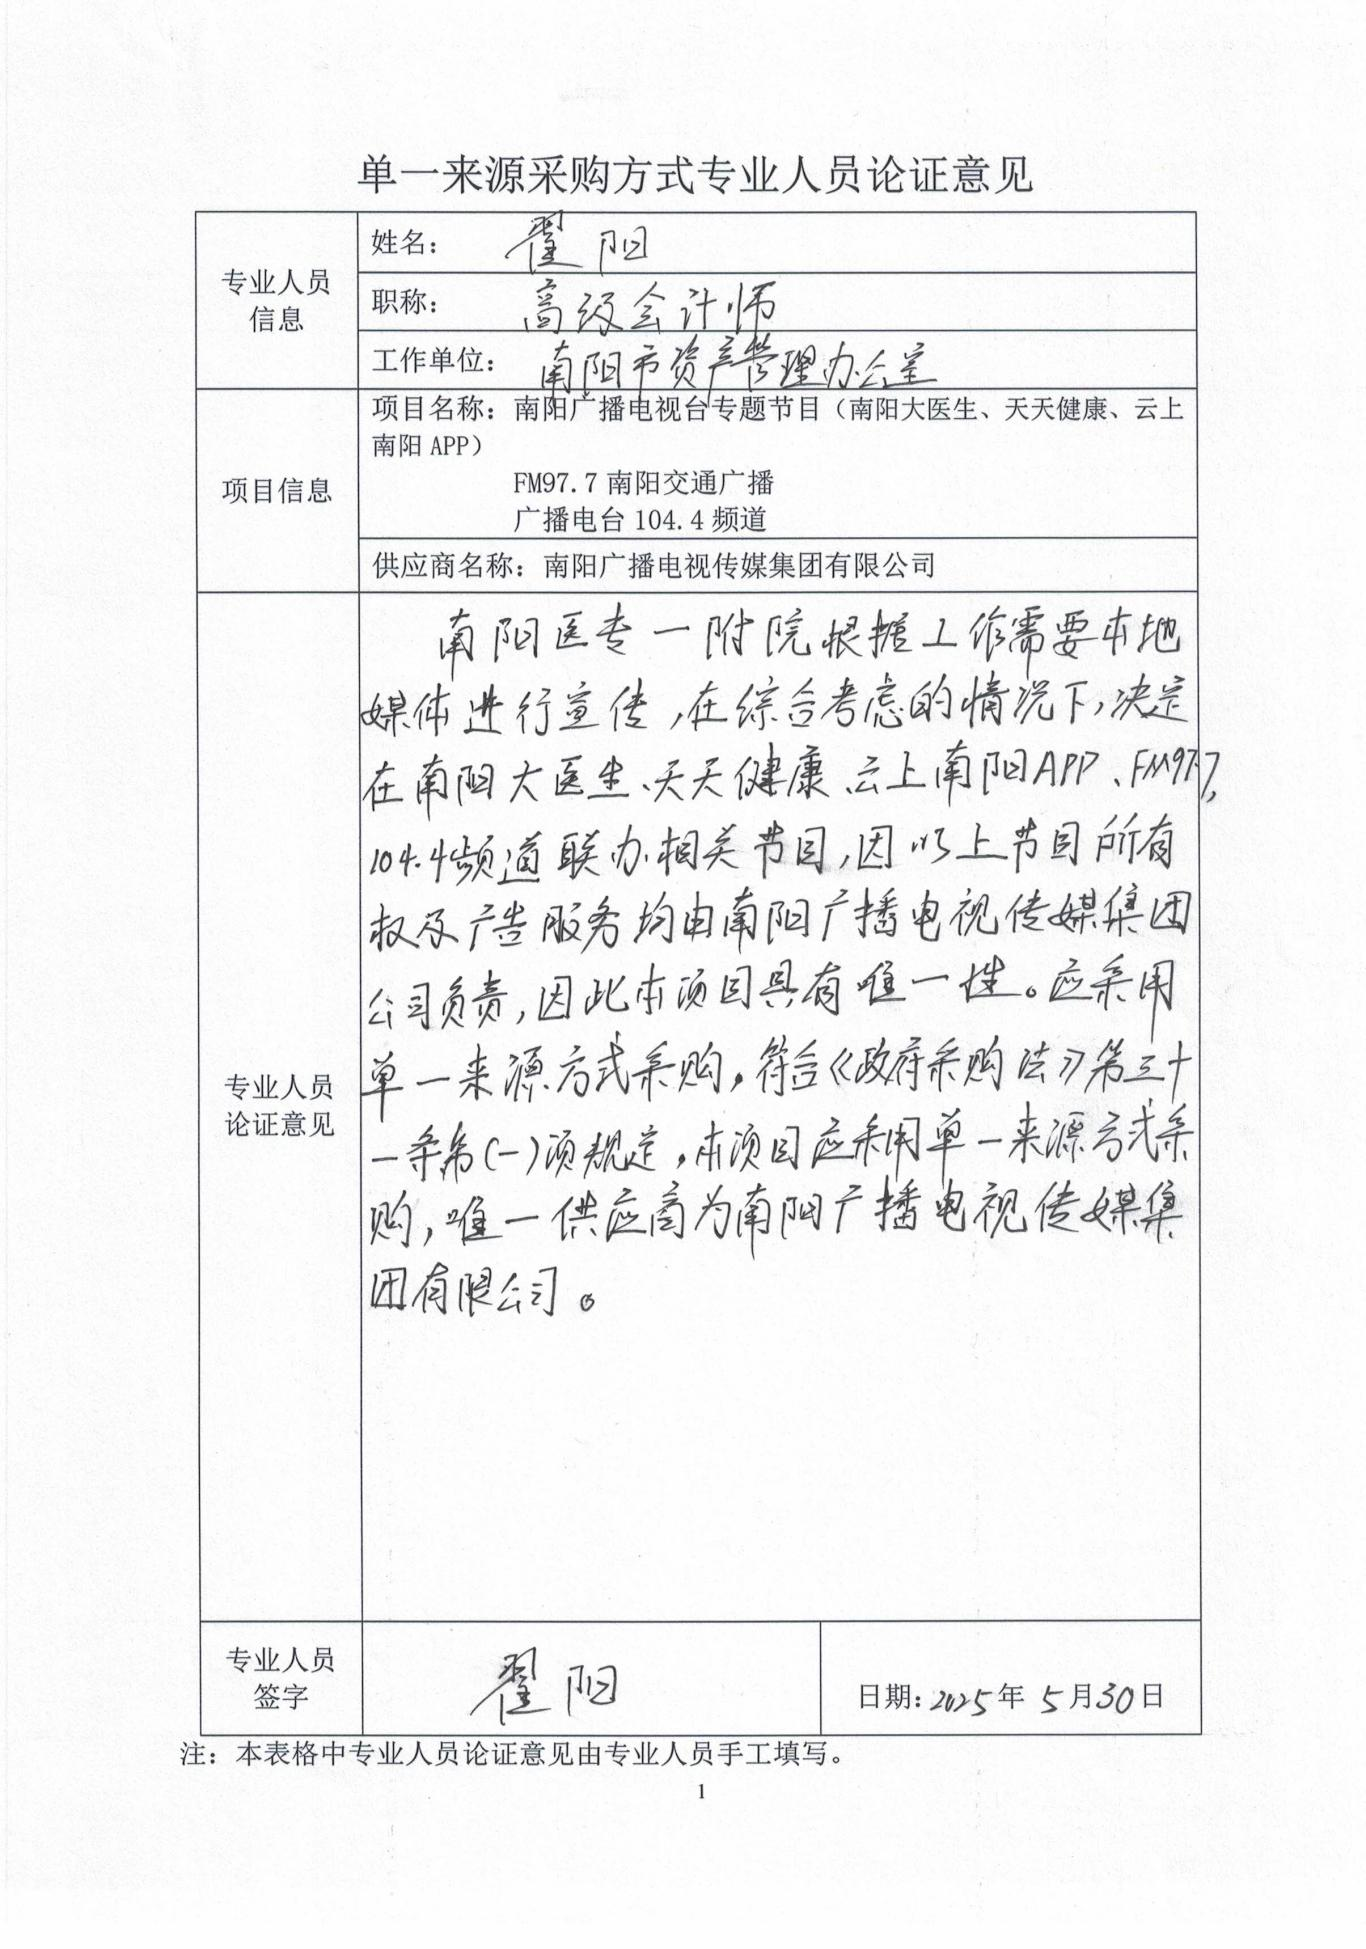 单一来源采购方式专业人员论证意见
专业人员
信息
姓名： 翟阳
职称： 高级会计师
工作单位： 南阳市资产管理办公室
项目信息
项目名称：南阳广播电视台专题节目（南阳大医生、天天健康、云上
南阳 APP）
FM97.7 南阳交通广播
广播电台 104.4 频道
供应商名称：南阳广播电视传媒集团有限公司
专业人员
论证意见
南阳医专一附院根据工作需要本地
媒体进行宣传,在综合考虑的情况下,决定
在南阳大医生、天天健康、云上南阳APP、FM97.7,
104.4频道联办相关节目,因以上节目所有
权及广告服务均由南阳广播电视传媒集团
公司负责,因此本项目具有唯一性。应采用
单一来源方式采购,符合《政府采购法》第三十
一条第(一)项规定,本项目应采用单一来源方式采
购,唯一供应商为南阳广播电视传媒集
团有限公司。
专业人员
签字
翟阳
日期：2025年 5月30日
注：本表格中专业人员论证意见由专业人员手工填写。
1